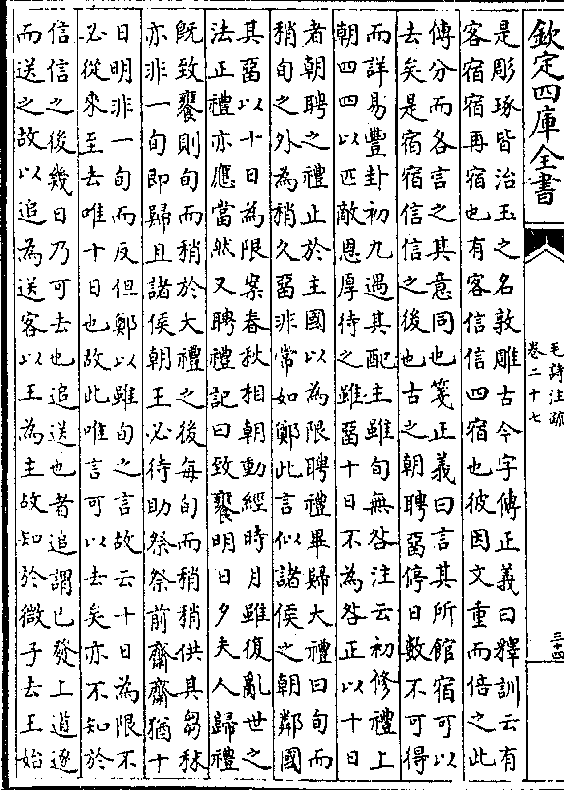 欽定四庫全書
毛詩注疏
卷二十七
三十四
是彫琢皆治玉之名敦雕古今字傳正義曰釋訓云有
客宿宿再宿也有客信信四宿也彼因文重而倍之此
傳分而各言之其意同也箋正義曰言其所館宿可以
去矣是宿宿信信之後也古之朝聘畱停日數不可得
而詳易豐卦初九遇其配主雖旬無咎注云初修禮上
朝四四以匹敵恩厚待之雖畱十日不為咎正以十日
者朝聘之禮止於主國以為限聘禮畢歸大禮曰旬而
稍旬之外為稍久畱非常如鄭此言似諸侯之朝鄰國
其畱以十日為限案春秋相朝動經時月雖復亂世之
法正禮亦應當然又聘禮記曰致饔明日夕夫人歸禮
既致饔則旬而稍於大禮之後每旬而稍稍供其芻秣
亦非一旬即歸且諸侯朝王必待助祭祭前齋齋猶十
日明非一旬而反但鄭以雖旬之言故云十日為限不
必從來至去唯十日也故此唯言可以去矣亦不知於
信信之後幾日乃可去也追送也者追謂已發上道逐
而送之故以追為送客以王為主故知於微子去王始